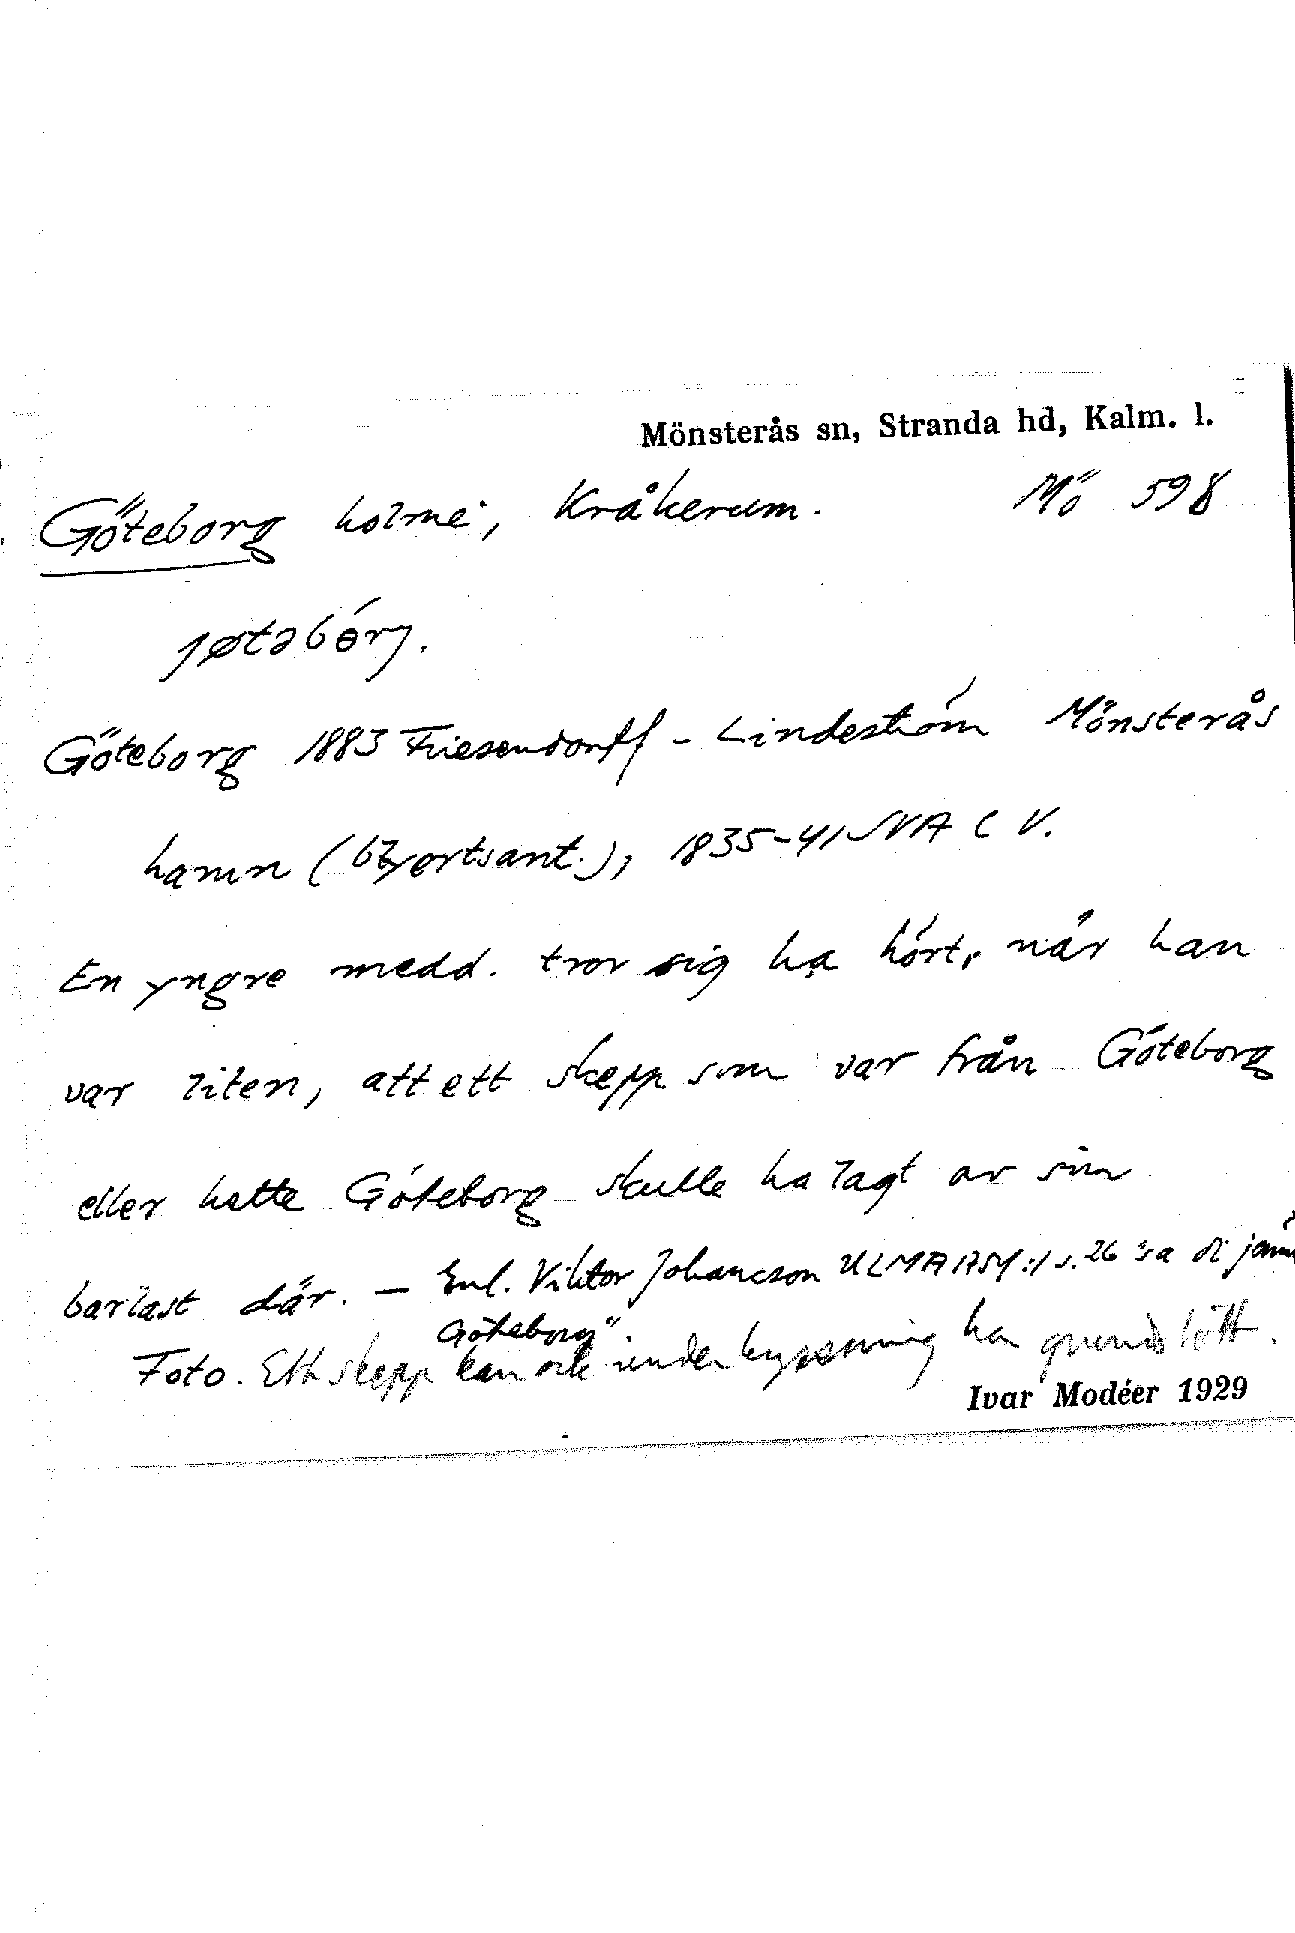 Mönsterås sn, Stranda hd, Kalm. l.
Göteborg holme, Kråkerum. Mö 598
jøtəbórj.
Göteborg 1883 Friesendorff - Lindeström Mönsterås
hamn ( ortsant.), 1835-41 SVA C V.
En yngre medd. tror sig ha hört, när han
var liten, att ett skepp som var från Göteborg
eller hette Göteborg skulle ha lagt av sin
barlast där. — Enl. Viktor Johancson ULMA s. 26 "sa di
Göteborg".
Foto. Ett skepp kan ock under kryssning ha grundstött.
Ivar Modéer 1929